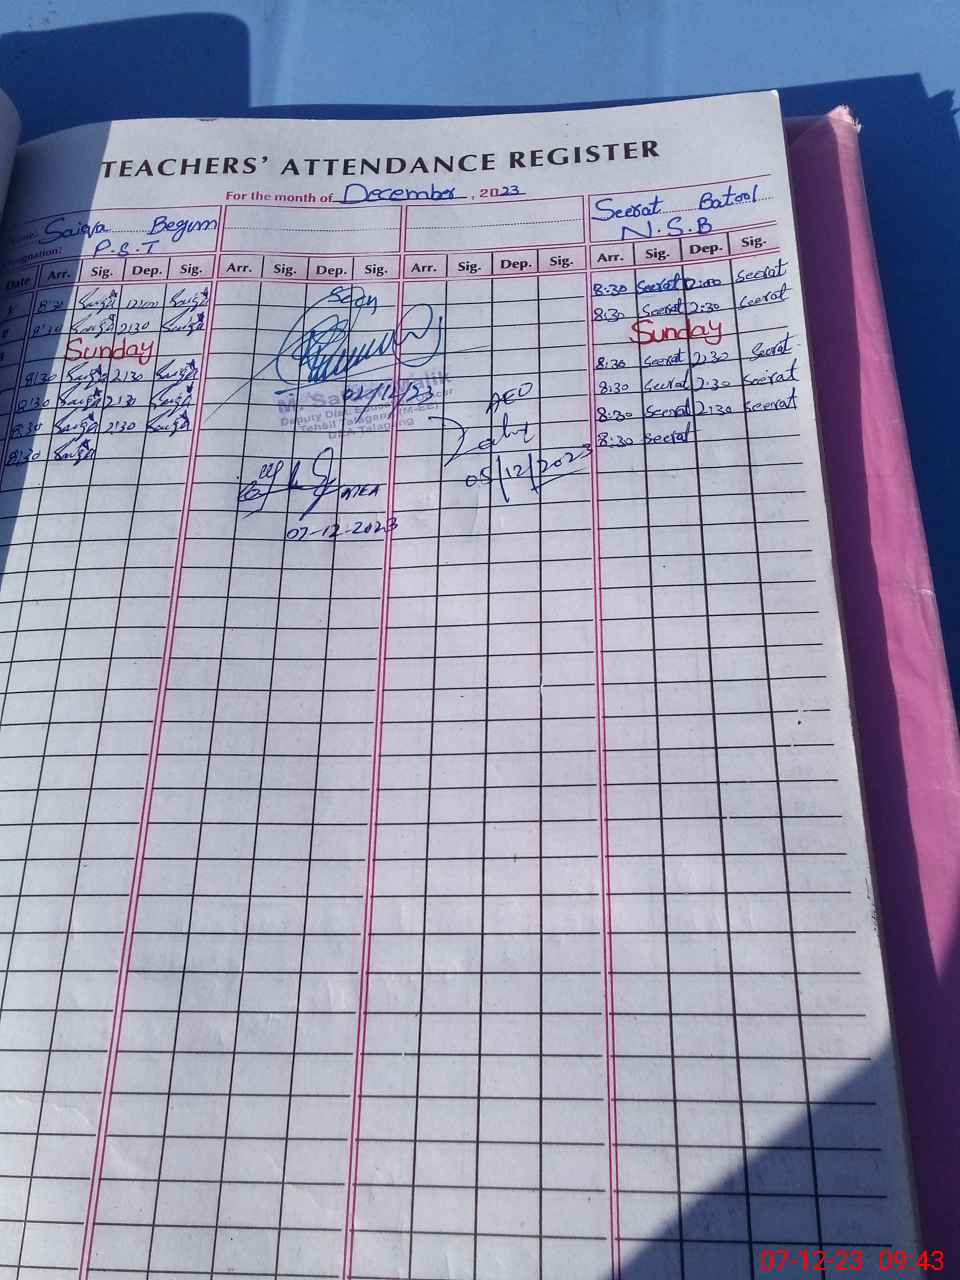 TEACHERS' ATTENDANCE REGISTER
For the month of December, 2023
Name: Saiqa Begum Seerat Batool
Designation: P.S.T N.S.B
Date Arr. Sig. Dep. Sig. Arr. Sig. Dep. Sig. Arr. Sig. Dep. Sig. Arr. Sig. Dep. Sig.
8:30 Saiqa 12:00 Saiqa Seen 8:30 Seerat 12:00 Seerat
8:30 Saiqa 2:30 Saiqa 8:30 Seerat 2:30 Seerat
Sunday Sunday
8:30 Saiqa 2:30 Saiqa 8:30 Seerat 2:30 Seerat
8:30 Saiqa 2:30 Saiqa 02/12/23 AEO 8:30 Seerat 2:30 Seerat
Deputy Distt. Education Officer
Tehsil Talagang (M-EE)
DEA Talagang
8:30 Saiqa 2:30 Saiqa 8:30 Seerat 2:30 Seerat
8:30 Saiqa 8:30 Seerat
05/12/2023
MEA
07-12-2023
07-12-23 09:43